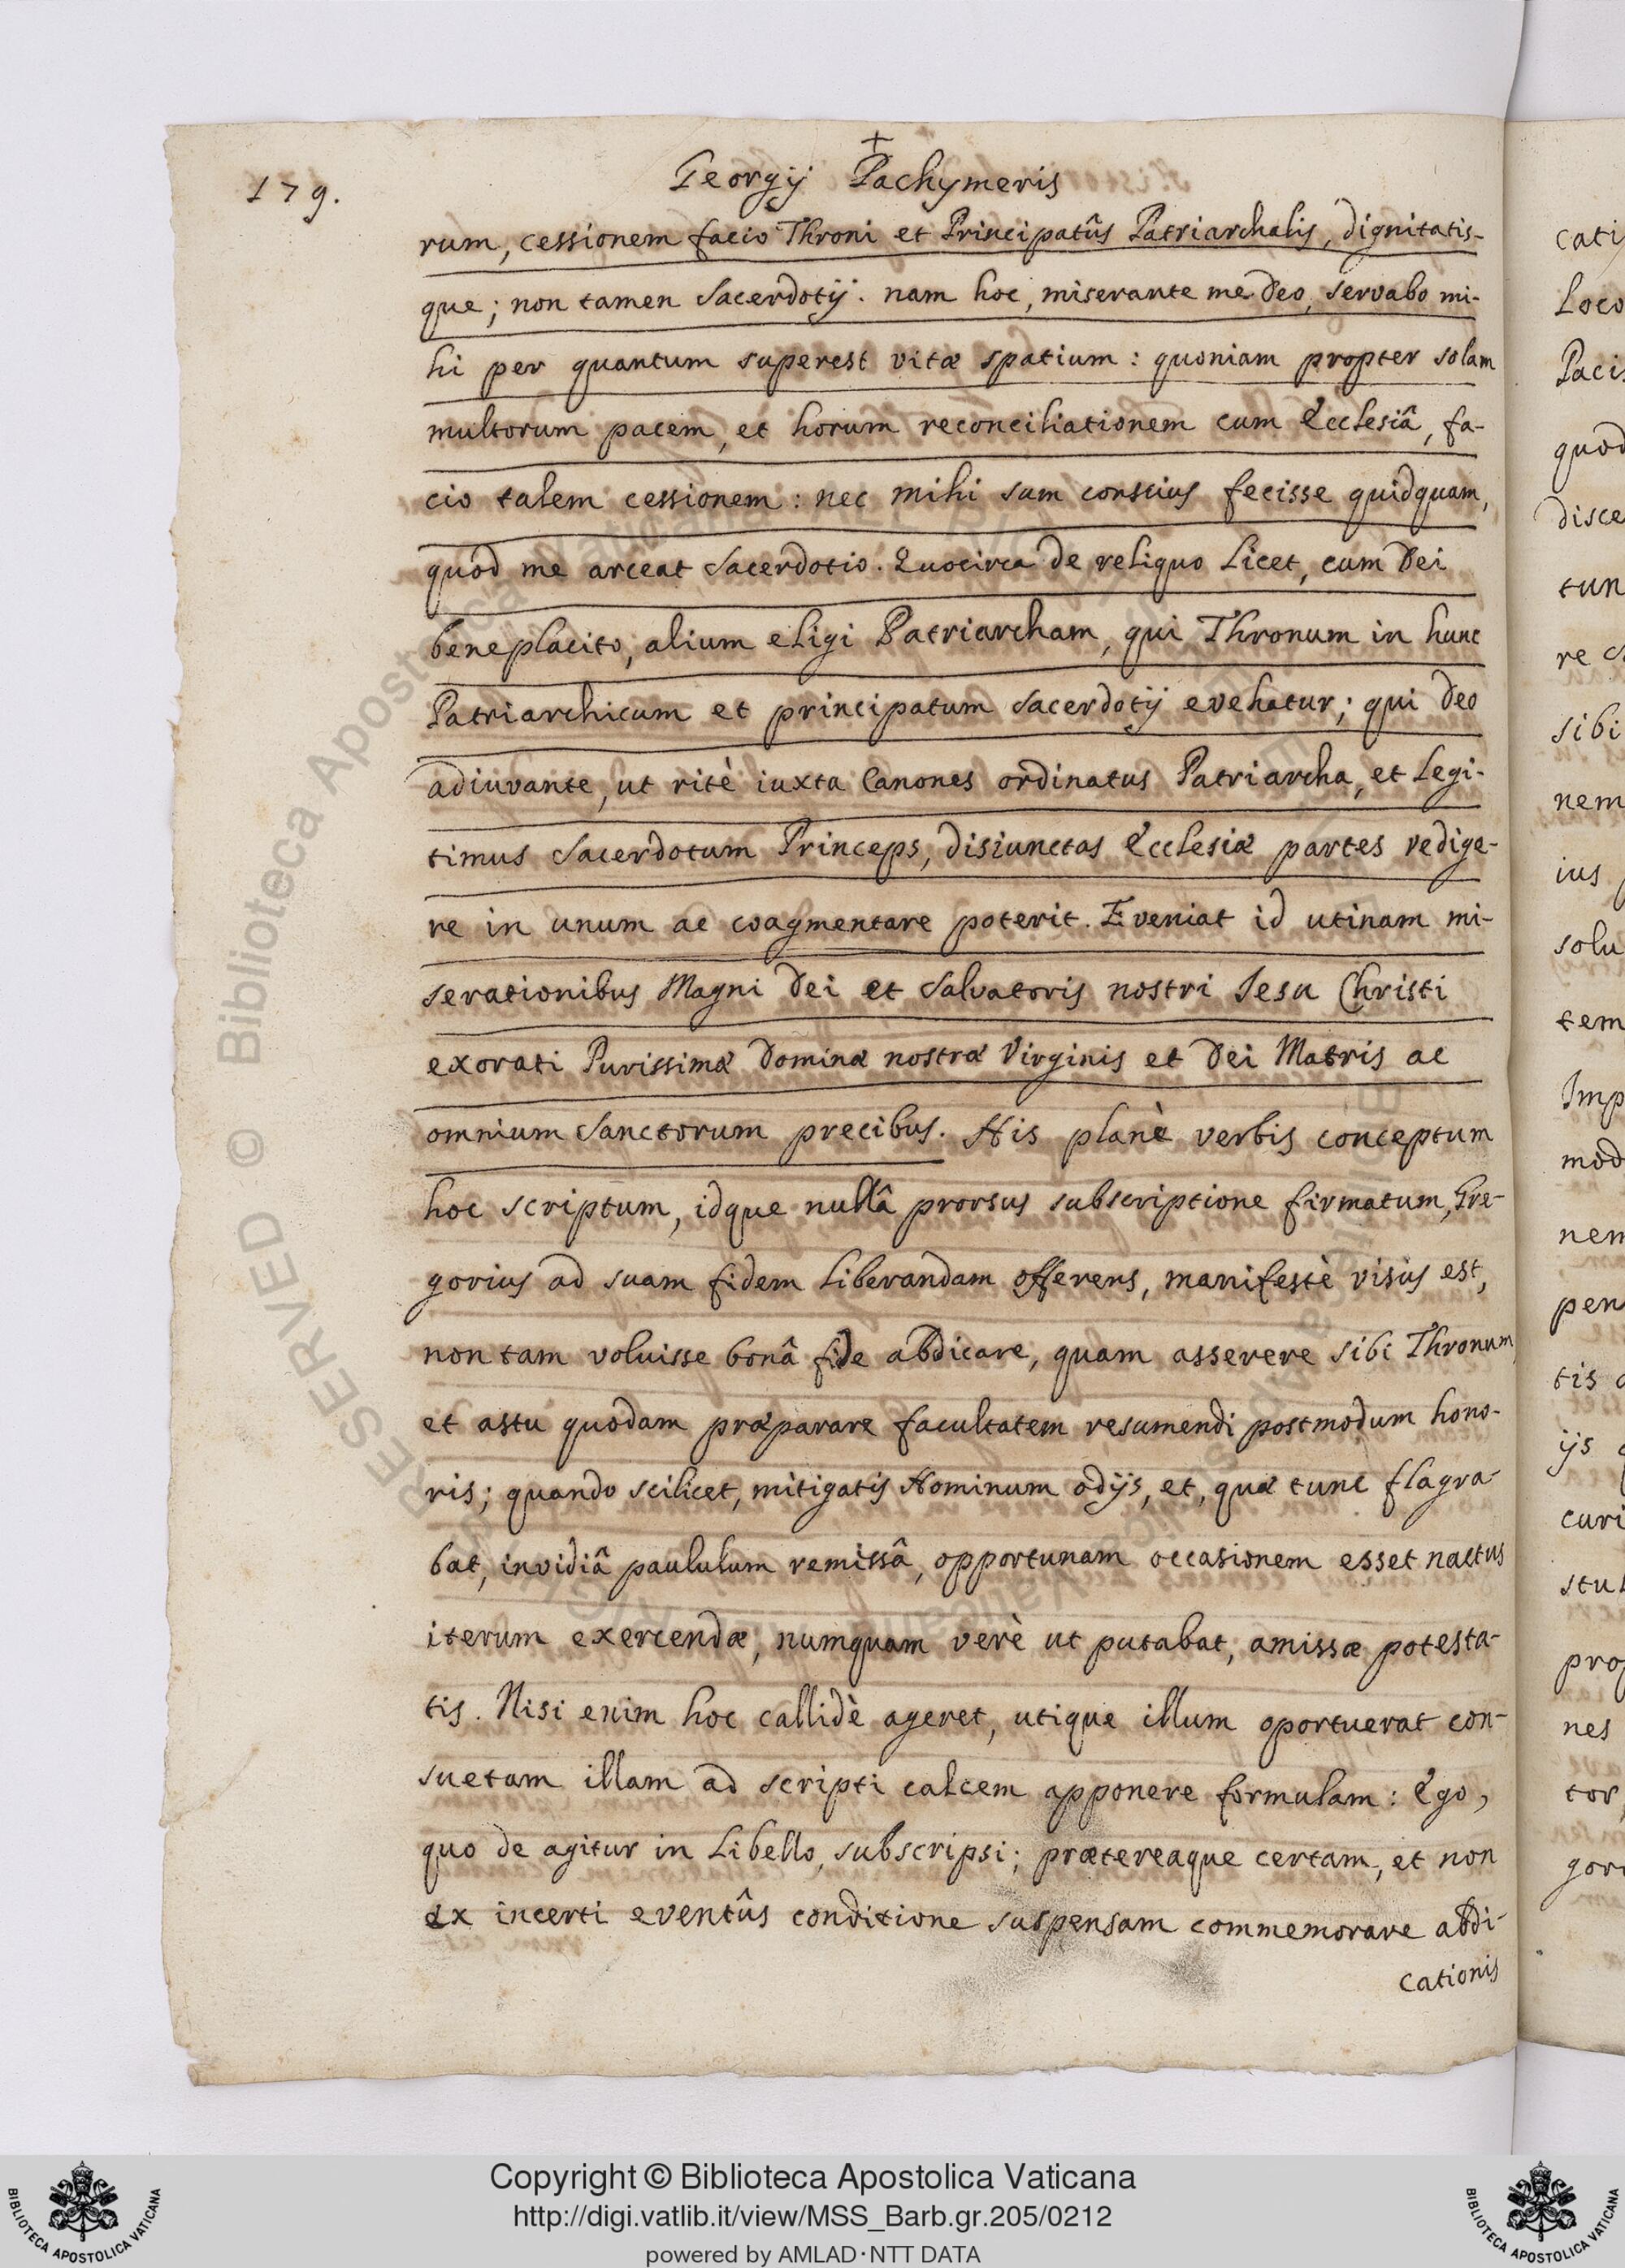 179.
+
Georgij Pachymeris
rum, cessionem facio Throni et Principatûs Patriarchalis, dignitatis-
que; non tamen Sacerdotij. nam hoc, miserante me Deo, servabo mi-
hi per quantum superest vitæ spatium: quoniam propter solam
multorum pacem, et horum reconciliationem cum Ecclesiâ, fa-
cio talem cessionem: nec mihi sum conscius fecisse quidquam,
quod me arceat Sacerdotio. Quocirca de reliquo licet, cum Dei
beneplacito, alium eligi Patriarcham, qui Thronum in hunc
Patriarchicum et principatum Sacerdotij evehatur; qui Deo
adiuvante, ut ritè iuxta Canones ordinatus Patriarcha, et Legi-
timus Sacerdotum Princeps, disiunctas Ecclesiæ partes redige-
re in unum ac coagmentare poterit. Eveniat id utinam mi-
serationibus Magni Dei et Salvatoris nostri Jesu Christi
exorati Purissimæ Dominæ nostræ Virginis et Dei Matris ac
omnium Sanctorum precibus. His planè verbis conceptum
hoc scriptum, idque nullâ prorsus subscriptione firmatum, Gre-
gorius ad suam fidem liberandam offerens, manifestè visus est,
non tam voluisse bonâ fide abdicare, quam asserere sibi Thronum,
et astu quodam præparare facultatem resumendi postmodum hono-
ris; quando scilicet, mitigatis Hominum odijs, et, quæ tunc flagra-
bat, invidiâ paululum remissâ, opportunam occasionem esset nactus
iterum exercendæ, numquam verè ut putabat, amissæ potesta-
tis. Nisi enim hoc callidè ageret, utique illum oportuerat con-
suetam illam ad scripti calcem apponere formulam: Ego,
quo de agitur in Libello, subscripsi; prætereaque certam, et non
ex incerti eventûs conditione suspensam commemorare abdi-
cationis
cati
Loco
Pacis
quod
disce
tun
re
sibi
nem
ius
solu
tem
Imp
mod
nem
pen
tis
ijs
curi
stul
prop
nes
tor
gori
RESERVED © Biblioteca Apostolica Vaticana
Copyright © Biblioteca Apostolica Vaticana
http://digi.vatlib.it/view/MSS_Barb.gr.205/0212
powered by AMLAD·NTT DATA
BIBLIOTECA APOSTOLICA VATICANA
BIBLIOTECA APOSTOLICA VATICANA